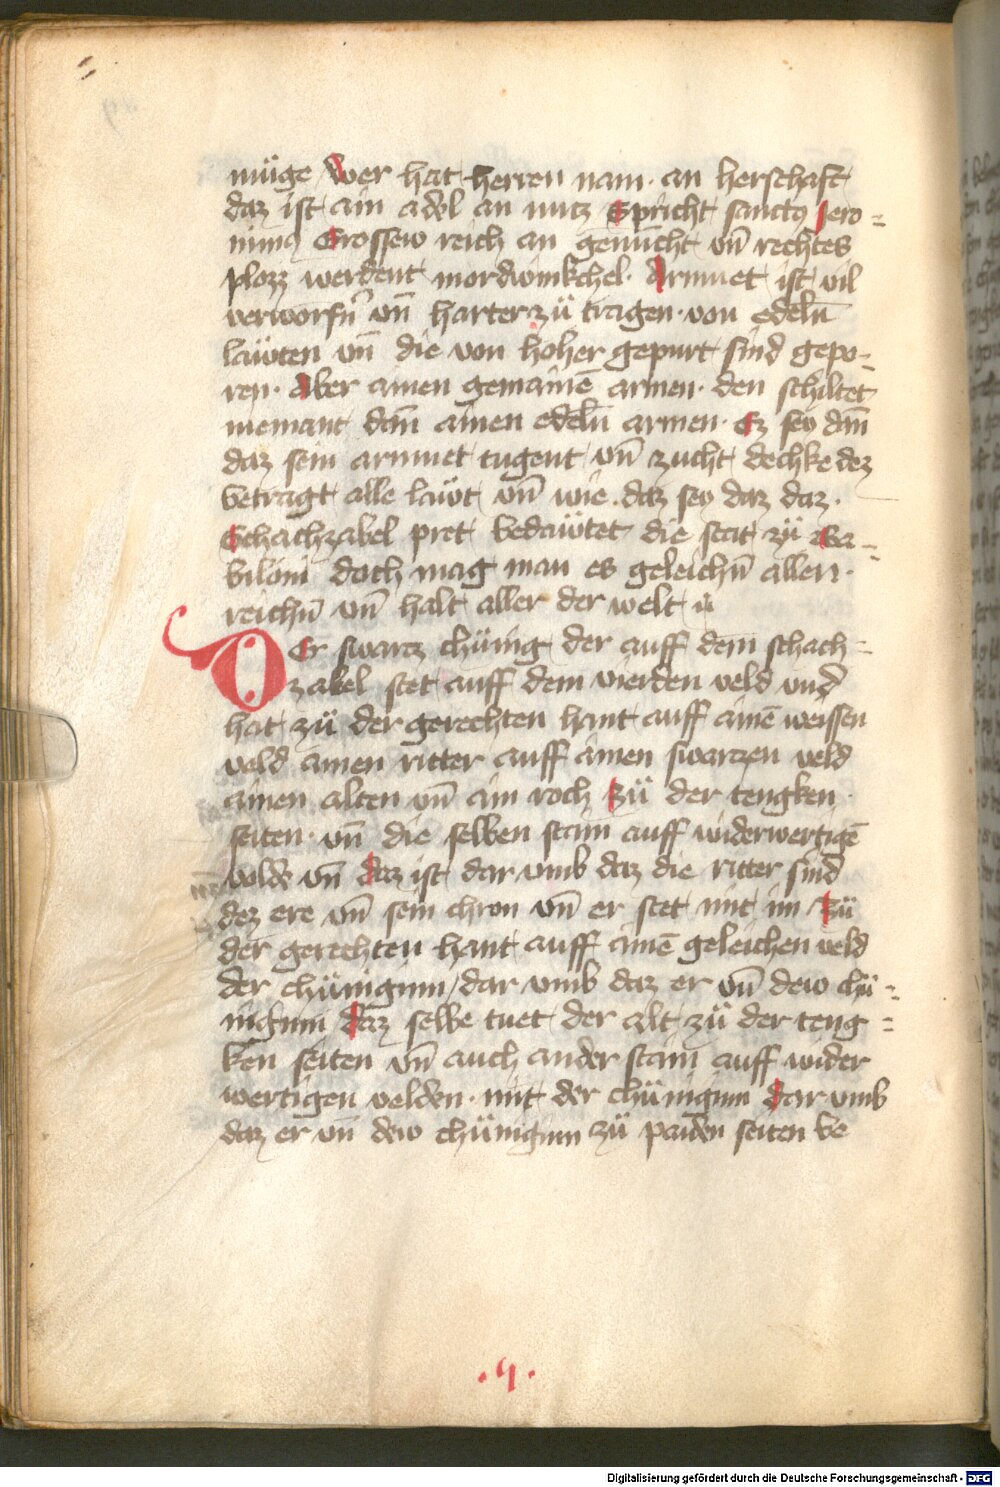 müge Wer hat herren nam · an herschaft
daz ist ain adel an nutz Spricht sanctꝯ Jero=
nimꝯ Grossew reich an genucht vn̄ rechtes
plozz werdent mordwinkchel · Armuet ist vil
verworfn̄ vn̄ harter zü tragen · von edeln̄
läwten vn̄ die von hoher gepurt sind gepo=
ren · Aber ainen gemainē armen · den schiltet
niemant dan̄ ainen edeln̄ armen · Ez sey dan̄
daz sein armuet tugent vn̄ zucht dechke dez
betragt alle läwt vn̄ wie · daz sey daz daz ·
Schachzabel pret bedäwtet die stat zü Ba=
biloni doch mag man es geleichn̄ allen ·
reichn̄ vn̄ halt aller der welt
DEr swartz chünig der auff dem schach=
zabel stet auff dem vierden veld vnd
hat zü der gerechten hant auff ainē weissen
veld ainen ritter auff ainen swarzen veld
ainen alten vn̄ ain roch Zü der tengken ·
seiten · vn̄ die selben stain auff widerwertigē
velde vn̄ daz ist dar vmb daz die ritter sind
dez ere vn̄ sein chron vn̄ er stet mit im Zü
der gerechten hant auff ainē geleichen veld
der chüniginn / dar vmb daz er vn̄ dew chü=
niginn daz selbe tuet der alt zü der teng=
ken seiten vn̄ auch ander stain auff wider
wertigen velden · mit der chüniginn dar vmb
daz er vn̄ dew chüniginn zü paiden seiten be
Digitalisierung gefördert durch die Deutsche Forschungsgemeinschaft - DFG